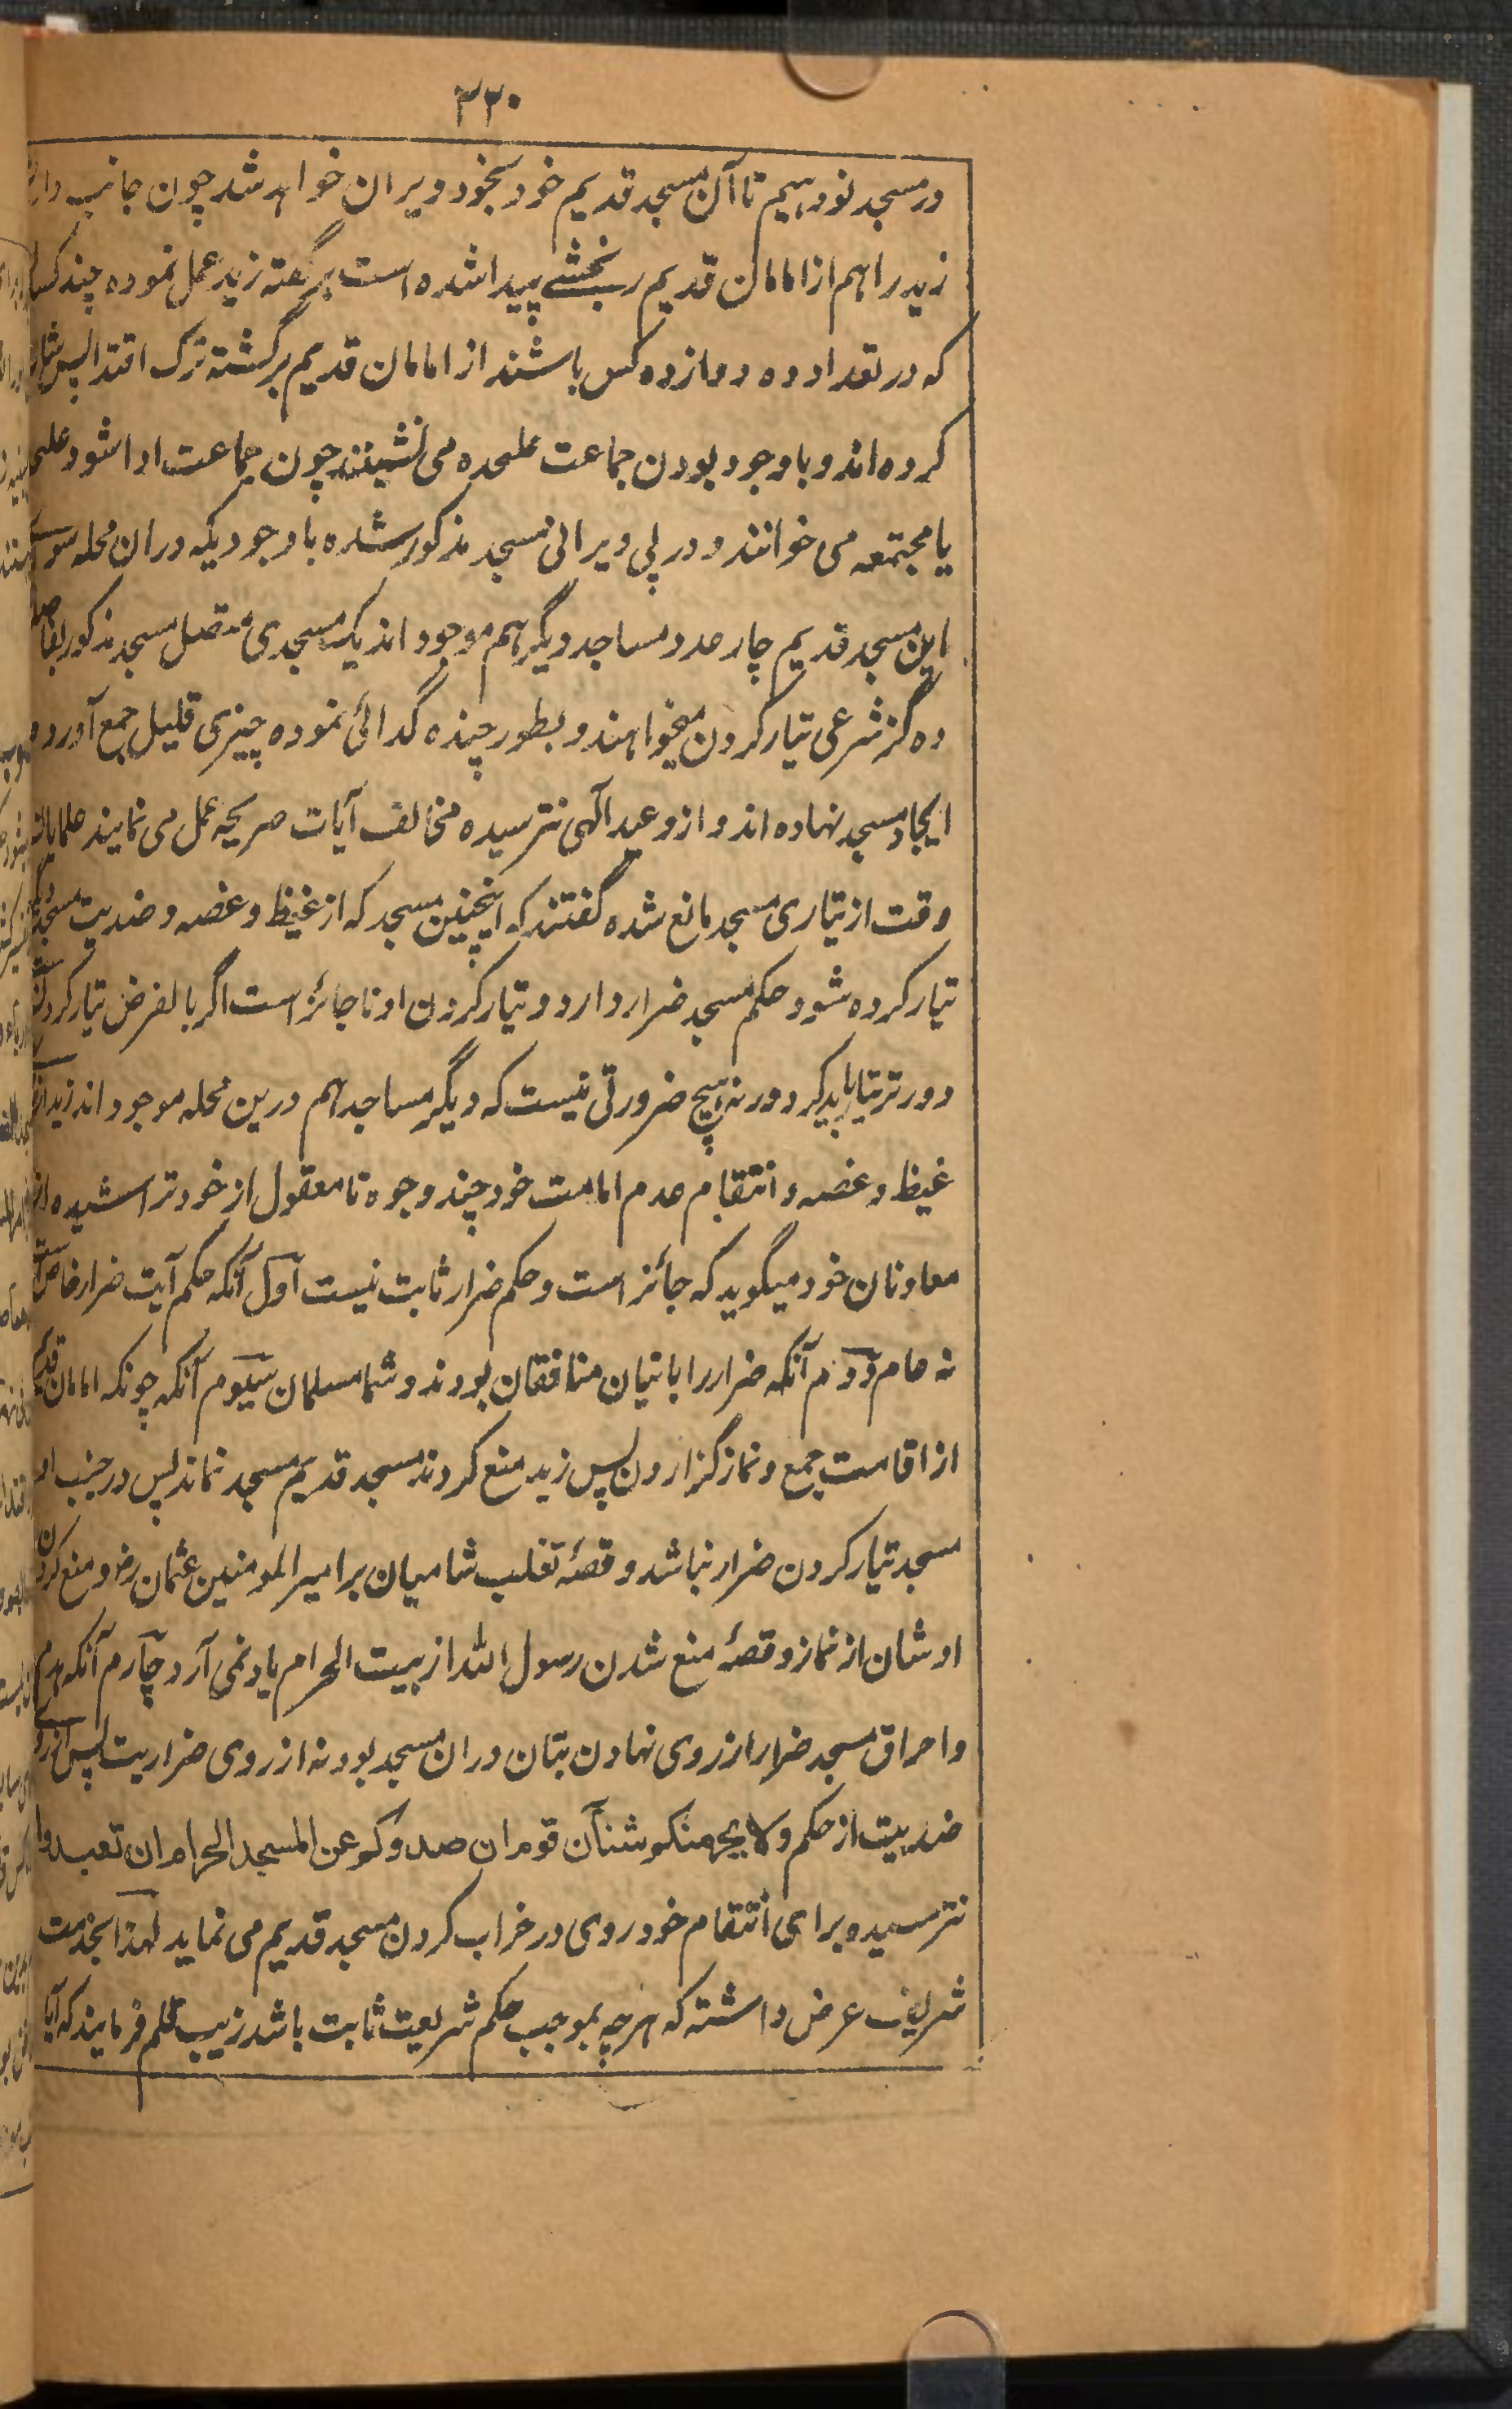 ۲۲۰
در مسجد نو دہیم تا آن مسجد قدیم خود بخود ویران خواہد شد چون جانب
زید را ہم از امامان قدیم رنجشے پیدا شدہ است بر گفتہ زید عمل نمودہ چند کسان
کہ در تعداد دہ دوازدہ کس باشند از امامان قدیم برگشتہ ترک اقتدا پس شان
کردہ اند و باوجود بودن جماعت علیحدہ می نشینند چون جماعت ادا شود علیحدہ
یا مجتمعہ می خوانند و در پی ویرانی مسجد مذکور شدہ باوجودیکہ دران محلہ سوے
این مسجد قدیم چار عدد مساجد دیگر ہم موجود اند یک مسجدی متصل مسجد مذکور بفاصلہ
دہ گز شرعی تیار کردن میخواہند و بطور چندہ گدائی نمودہ چیزی قلیل جمع آوردہ
ایجاد مسجد نہادہ اند و از وعید الٰہی نترسیدہ مخالف آیات صریحہ عمل می نمایند علمایان
وقت از تیاری مسجد مانع شدہ گفتند کہ اینچنین مسجد کہ از غیظ و غصہ و ضدیت مسجد دیگر
تیار کردہ شود حکم مسجد ضرار دارد و تیار کردن او ناجائز است اگر بالفرض تیار کردنی است
دورتر تیار باید کرد ورنہ ہیچ ضرورتی نیست کہ دیگر مساجد ہم درین محلہ موجود اند زید از
غیظ و غصہ و انتقام عدم امامت خود چند وجوہ نامعقول از خود تراشیدہ از
معاونان خود میگوید کہ جائز است و حکم ضرار ثابت نیست اول آنکہ حکم آیت ضرار خاص است
نہ عام دوم آنکہ ضرار را بانیان منافقان بودند و شما مسلمان سیوم آنکہ چونکہ امامان قدیم
از اقامت جمع و نماز گزاردن پس زید منع کردند مسجد قدیم مسجد نماند پس در جنب او
مسجد تیار کردن ضرار نباشد و قصہٴ تغلب شامیان بر امیر المومنین عثمان رض و منع کردن
اوشان از نماز و قصہٴ منع شدن رسول اللہ از بیت الحرام یاد نمی آرد چارم آنکہ ہدم
و احراق مسجد ضرار از روی نہادن بتان دران مسجد بود نہ از روی ضراریت پس از روی
ضدیت از حکم ولا یجرمنکم شنآن قوم ان صدوکم عن المسجد الحرام ان تعتدوا
نترسیدہ برای انتقام خود روی در خراب کردن مسجد قدیم می نماید لہذا بخدمت
شریف عرض داشتہ کہ ہرچہ بموجب حکم شریعت ثابت باشد زیب قلم فرمایند کہ آیا